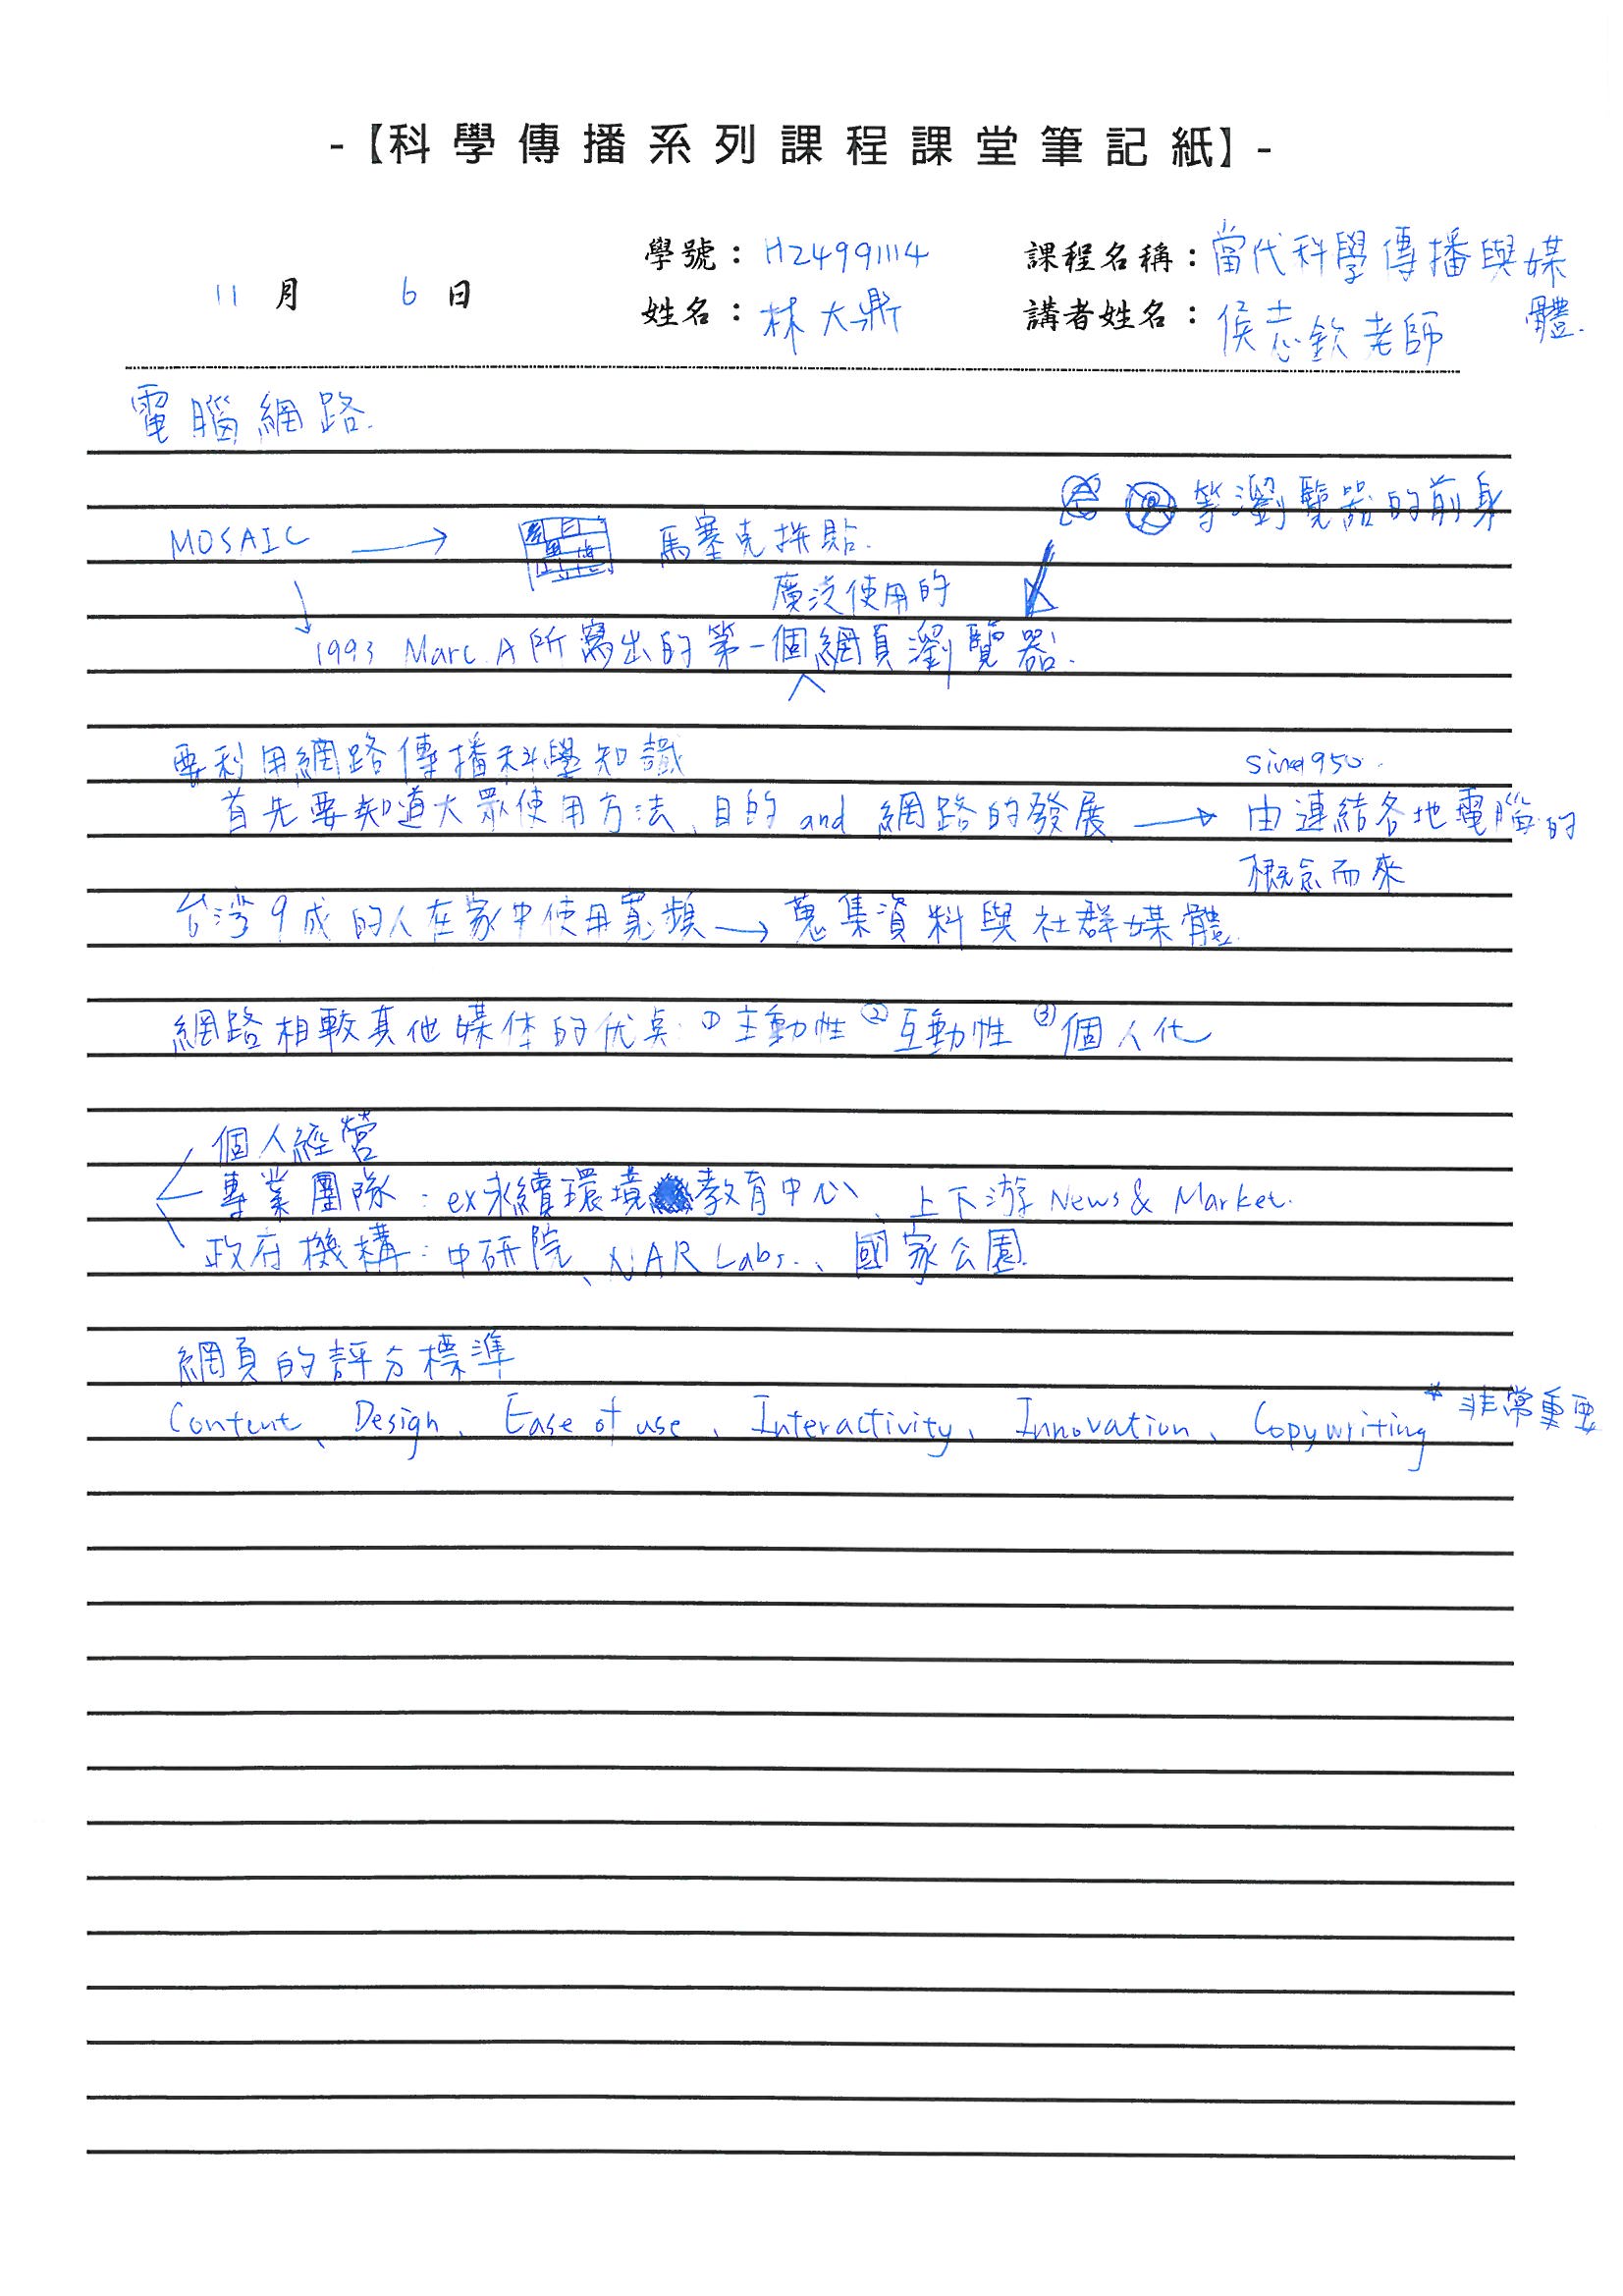 -【科學傳播系列課程課堂筆記紙】-
學號：H24991114 課程名稱：當代科學傳播與媒體.
11月 6日 姓名：林大鼎 講者姓名：侯志欽老師
電腦網路.
等瀏覽器的前身
MOSAIC → 馬賽克拼貼.
廣泛使用的
1993 Marc. A 所寫出的第一個網頁瀏覽器.
要利用網路傳播科學知識
since1950.
首先要知道大眾使用方法、目的 and 網路的發展 → 由連結各地電腦的
概念而來
台湾9成的人在家中使用寬頻 → 蒐集資料與社群媒體.
網路相較其他媒体的优点: ①主動性 ②互動性 ③個人化
個人經營
專業團隊：ex永續環境教育中心、上下游News & Market.
政府機構：中研院、NAR Labs.、國家公園.
網頁的評分標準
Content、Design、Ease of use、Interactivity、Innovation、Copywriting * 非常重要